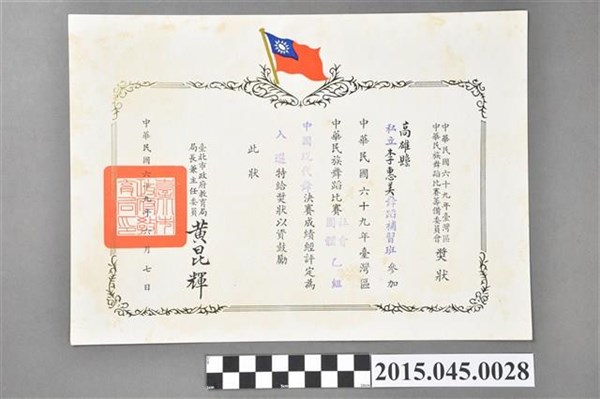 中華民國六十九年臺灣區
中華民族舞蹈比賽籌備委員會
獎狀
高雄縣
私立李惠美舞蹈補習班 參加
中華民國六十九年臺灣區
中華民族舞蹈比賽 社會乙組
團體
中國現代舞決賽成績經評定為
入選特給獎狀以資鼓勵
此狀
臺北市政府教育局
局長兼主任委員
黃昆輝
中華民國六十九年 月七日
2015.045.0028